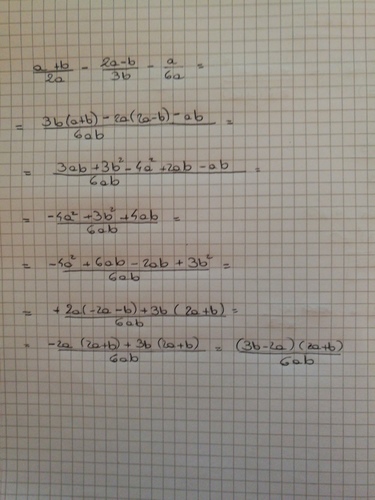 (a+b)/(2a) - (2a-b)/(3b) - a/(6a) =
= (3b(a+b) - 2a(2a-b) - ab)/(6ab) =
= (3ab + 3b² - 4a² + 2ab - ab)/(6ab) =
= (-4a² + 3b² + 4ab)/(6ab) =
= (-4a² + 6ab - 2ab + 3b²)/(6ab) =
= (+2a(-2a-b) + 3b(2a+b))/(6ab) =
= (-2a(2a+b) + 3b(2a+b))/(6ab) = ((3b-2a)(2a+b))/(6ab)